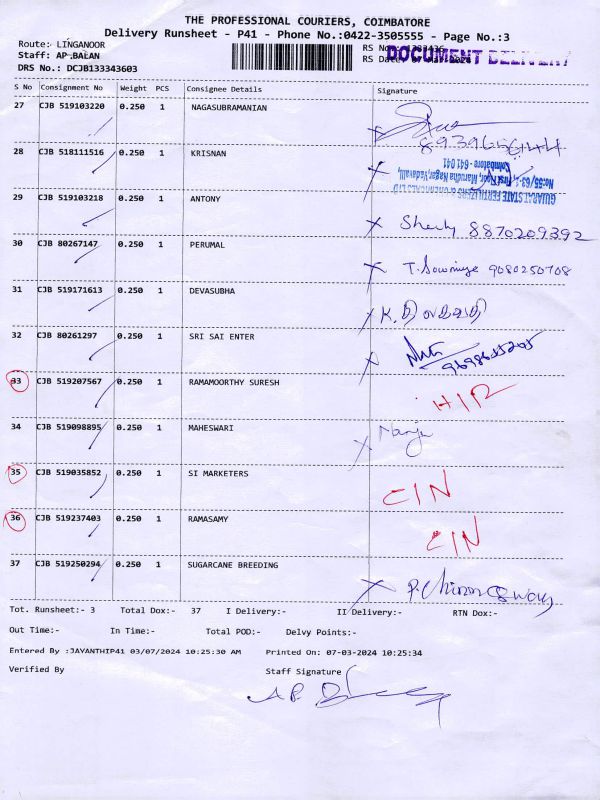 THE PROFESSIONAL COURIERS, COIMBATORE
Delivery Runsheet - P41 - Phone No.:0422-3505555 - Page No.:3
Route: LINGANOOR
Staff: AP.BALAN
DRS No.: DCJB133343603
DOCUMENT DELIVERY
S No Consignment No Weight PCS Consignee Details Signature
27 CJB 519103220 0.250 1 NAGASUBRAMANIAN
28 CJB 518111516 0.250 1 KRISNAN
GUJARAT STATE FERTILIZERS & CHEMICALS LTD
No:55/63-1, First Floor, Marudha Nagar, Vadavalli,
Coimbatore - 641 041
29 CJB 519103218 0.250 1 ANTONY 8870209392
30 CJB 80267147 0.250 1 PERUMAL T. Sowmiya 9080250708
31 CJB 519171613 0.250 1 DEVASUBHA
32 CJB 80261297 0.250 1 SRI SAI ENTER
33 CJB 519207567 0.250 1 RAMAMOORTHY SURESH
34 CJB 519098895 0.250 1 MAHESWARI
35 CJB 519035852 0.250 1 SI MARKETERS CIN
36 CJB 519237403 0.250 1 RAMASAMY CIN
37 CJB 519250294 0.250 1 SUGARCANE BREEDING
Tot. Runsheet:- 3 Total Dox:- 37 I Delivery:- II Delivery:- RTN Dox:-
Out Time:- In Time:- Total POD:- Delvy Points:-
Entered By :JAYANTHIP41 03/07/2024 10:25:30 AM Printed On: 07-03-2024 10:25:34
Verified By Staff Signature